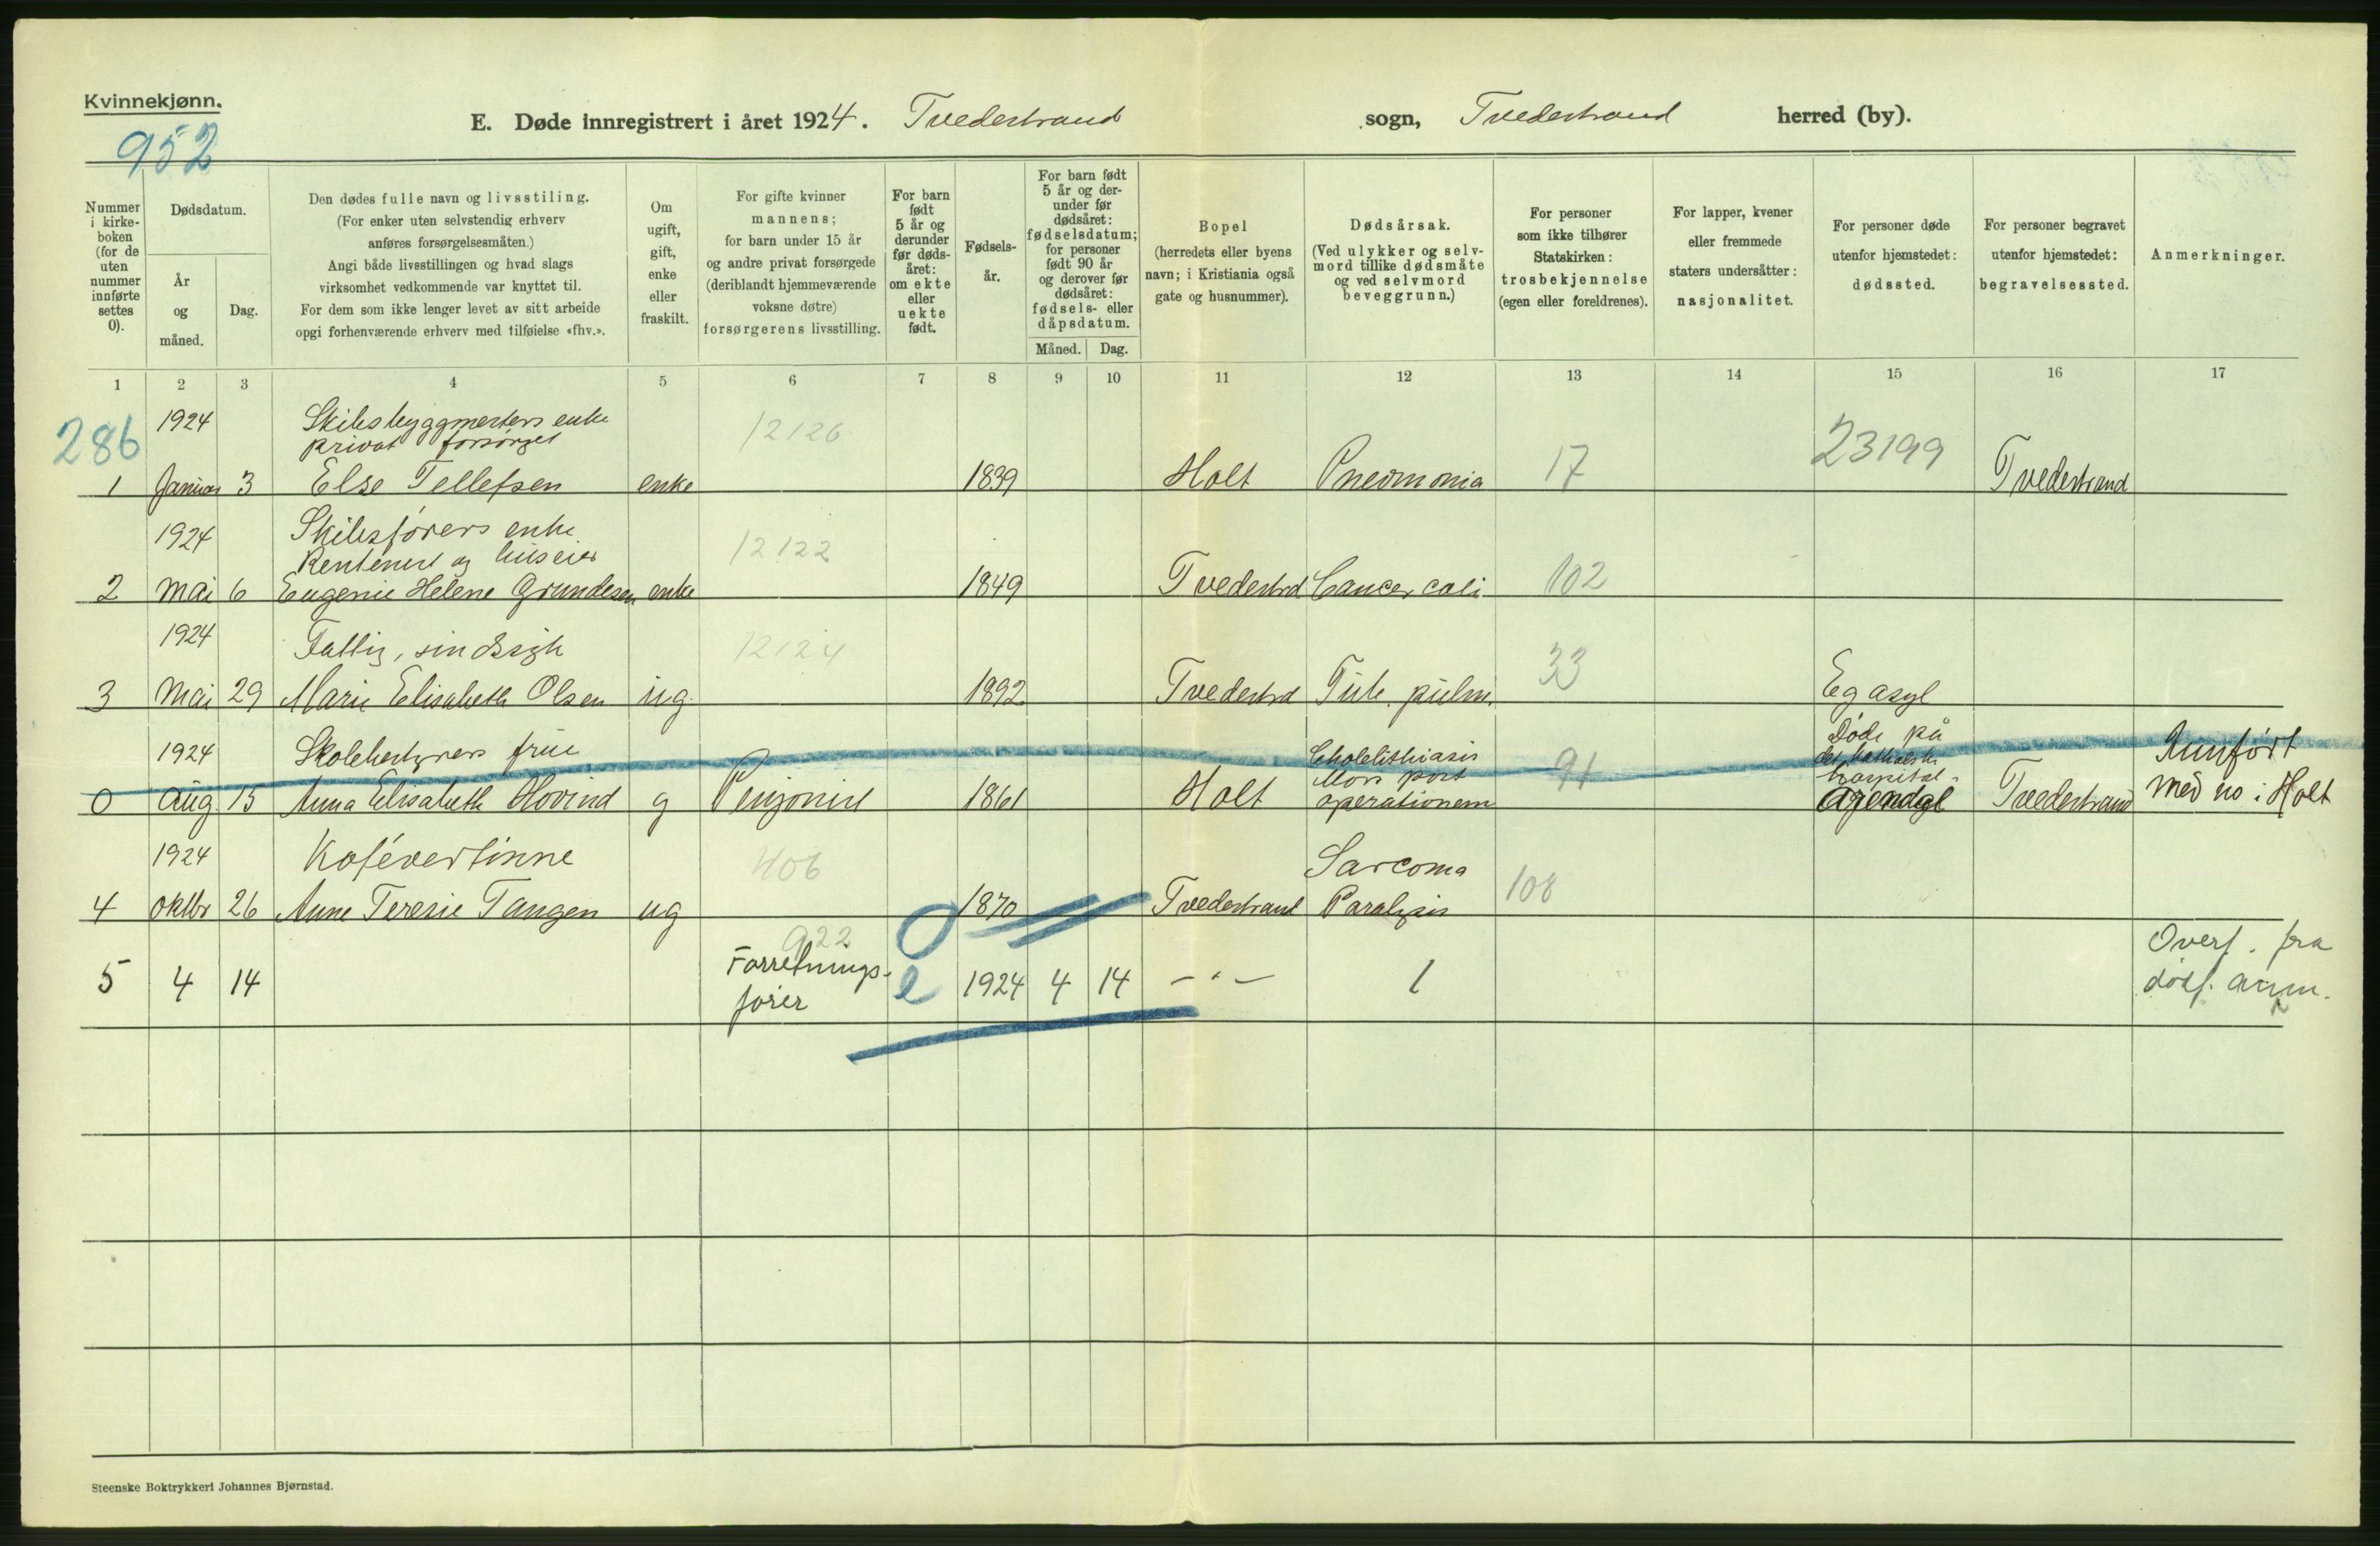 Kvinnekjønn.
952
E. Døde innregistrert i året 1924. Tvedestrand sogn, Tvedestrand herred (by).
Nummer i kirkeboken (for de uten nummer innførte settes 0).
Dødsdatum.
År og måned.
Dag.
Den dødes fulle navn og livsstiling.
(For enker uten selvstendig erhverv
anføres forsørgelsesmåten.)
Angi både livsstillingen og hvad slags
virksomhet vedkommende var knyttet til.
For dem som ikke lenger levet av sitt arbeide
opgi forhenværende erhverv med tilføielse «fhv.».
Om ugift, gift, enke eller fraskilt.
For gifte kvinner
mannens;
for barn under 15 år
og andre privat forsørgede
(deriblandt hjemmeværende
voksne døtre)
forsørgerens livsstilling.
For barn født 5 år og derunder før dødsåret: om ekte eller uekte født.
Fødselsår.
For barn født 5 år og derunder før dødsåret: fødselsdatum; for personer født 90 år og derover før dødsåret: fødsels- eller dåpsdatum.
Måned. Dag.
Bopel
(herredets eller byens
navn; i Kristiania også
gate og husnummer).
Dødsårsak.
(Ved ulykker og selv-
mord tillike dødsmåte
og ved selvmord
beveggrunn.)
For personer
som ikke tilhører
Statskirken:
trosbekjennelse
(egen eller foreldrenes).
For lapper, kvener
eller fremmede
staters undersåtter:
nasjonalitet.
For personer døde
utenfor hjemstedet:
dødssted.
For personer begravet
utenfor hjemstedet:
begravelsessted.
Anmerkninger.
1 2 3 4 5 6 7 8 9 10 11 12 13 14 15 16 17
286 1924 Skibsbyggmesters enke 12126 23199
privat forsørget
1 Januar 3 Else Tellefsen enke 1839 Holt Pneumonia 17 Tvedestrand
1924 Skibsførers enke
Rentenist og huseier 12122
2 Mai 6 Eugenie Helene Grundesen enke 1849 Tvedestrd Cancer coli 102
1924 Fattig, sindssyk 12124
3 Mai 29 Marie Elisabeth Olsen ug. 1892 Tvedestrd Tub. pulm. 33 Eg asyl
1924 Skolebestyrers frue Cholelithiasis Døde på Annført
Mors post 91 det katholske
hospital
0 Aug. 15 Anna Elisabeth Hovind g Pensjonist 1861 Holt operationem Arendal Tvedestrand med no i Holt
1924 Kafévertinne 406 Sarcoma
4 oktbr 26 Anne Teresie Tangen ug 1870 Tvedestrand Paralysis 108
922 0 Overf. fra
5 4 14 Forretnings- e 1924 4 14 —"— 1 dødf. anm.
fører
Steenske Boktrykkeri Johannes Bjørnstad.